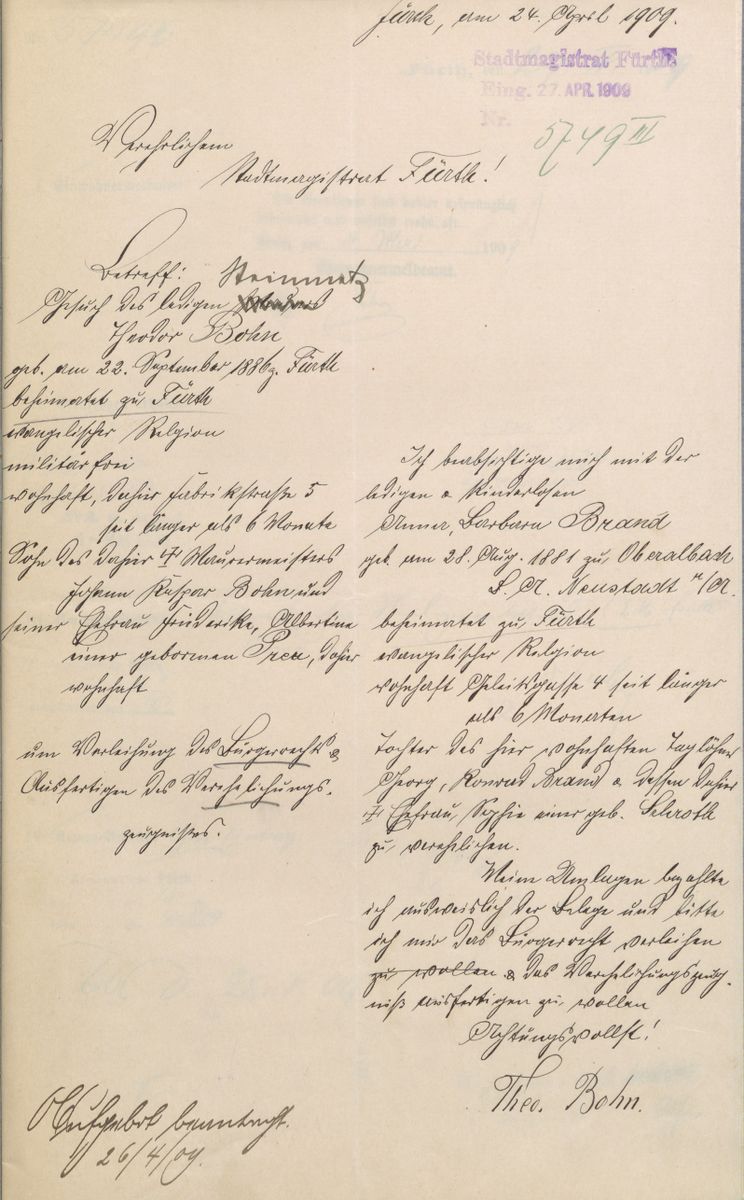 Fürth, am 24. April 1909.
Stadtmagistrat Fürth
Eing. 27. APR. 1909
Nr.
5749 III
Verehrlichem
Stadtmagistrat Fürth!
Betreff: Steinmetz
Gesuch des ledigen
Theodor Bohn
geb. am 22. September 1886 z. Fürth
beheimatet zu Fürth
evangelischer Religion
militärfrei
wohnhaft, dahier Fabrikstraße 5
seit länger als 6 Monate
Sohn des dahier † Maurermeisters
Johann Kaspar Bohn und
seiner Ehefrau Friederike, Albertine
einer gebornen, dahier
wohnhaft
um Verleihung des Bürgerrechts &
Ausfertigen des Verehelichungs-
zeugnisses.
Ich beabsichtige mich mit der
ledigen & kinderlosen
Anna, Barbara Brand
geb. am 28. Aug. 1881 zu Oberalbach
B. A. Neustadt a/A.
beheimatet zu Fürth
evangelischer Religion
wohnhaft Geleitsgasse 4 seit länger
als 6 Monaten
Tochter des hier wohnhaften Taglöhner
Georg, Konrad Brand & dessen dahier
† Ehefrau, Sophie einer geb. Schroth
zu verehelichen.
Meine Umlagen bezahlte
ich ausweislich der Belege und bitte
ich mir das Bürgerrecht verleihen
zu wollen & das Verehelichungszeug-
niß ausfertigen zu wollen
Achtungsvollst!
Theo. Bohn.
beantragt.
26/4/09.